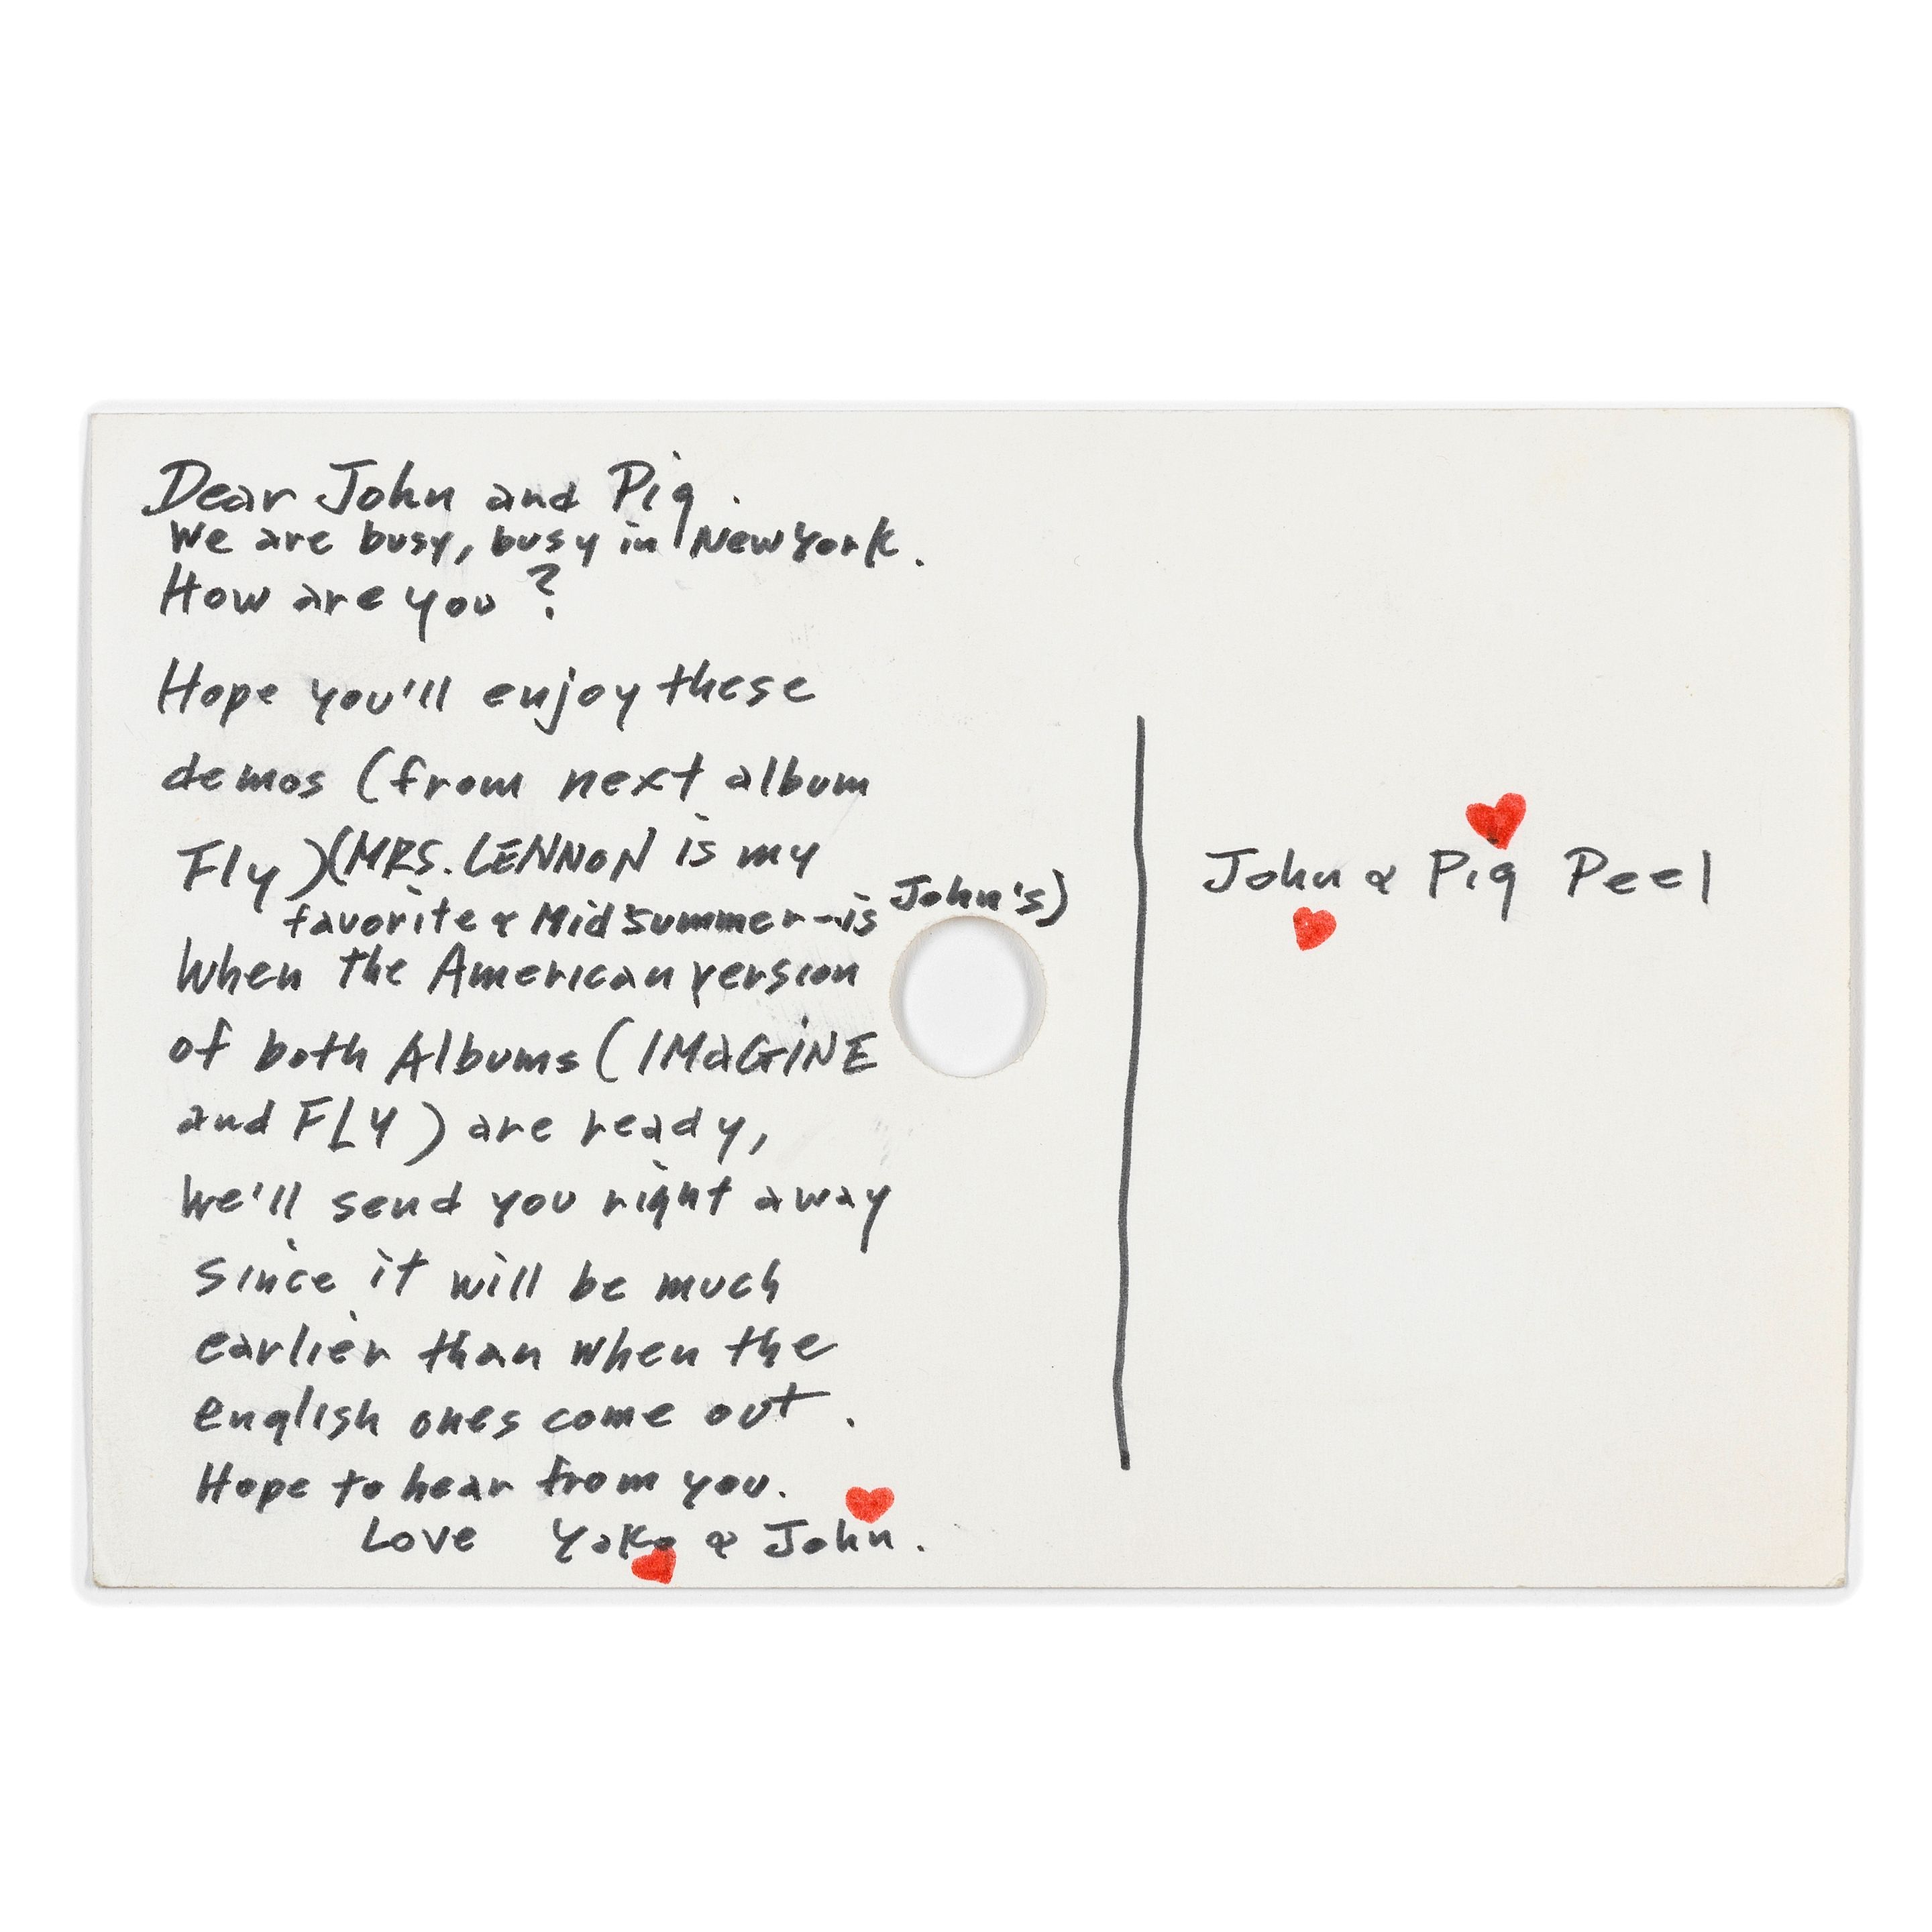 Dear John and Pig.
We are busy, busy in New York.
How are you?
Hope you'll enjoy these
demos (from next album
Fly) (MRS. LENNON is my
favorite & Midsummer - is John's)
When the American version
of both Albums (IMaGiNE
and FLY) are ready,
We'll send you right away
since it will be much
earlier than when the
english ones come out.
Hope to hear from you.
Love Yoko & John.
John & Pig Peel